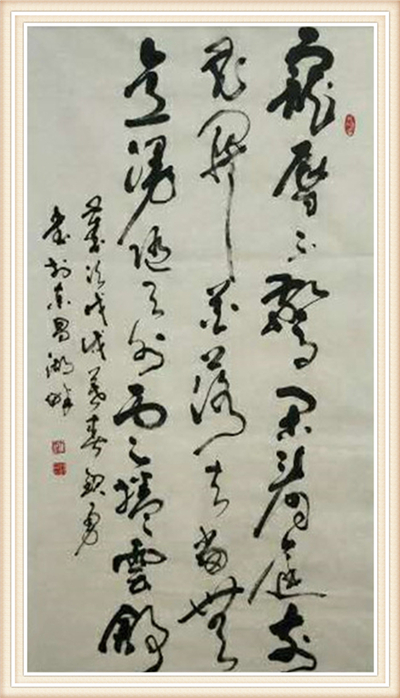 寵辱不驚閑看庭前
花開花落去留無
意漫隨天外雲捲雲舒
歲次戊戌暮春勇
書於東昌湖畔